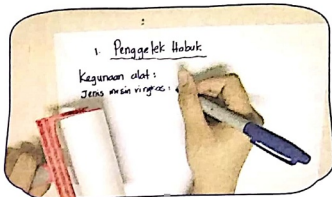 1. Penggelek Habuk
Kegunaan alat :
Jenis mesin ringkas :